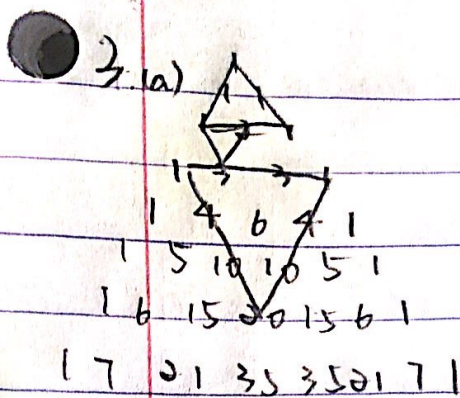 3.(a)
1
1 1
1 2 1
1 3 3 1
1 4 6 4 1
1 5 10 10 5 1
1 6 15 20 15 6 1
1 7 21 35 35 21 7 1